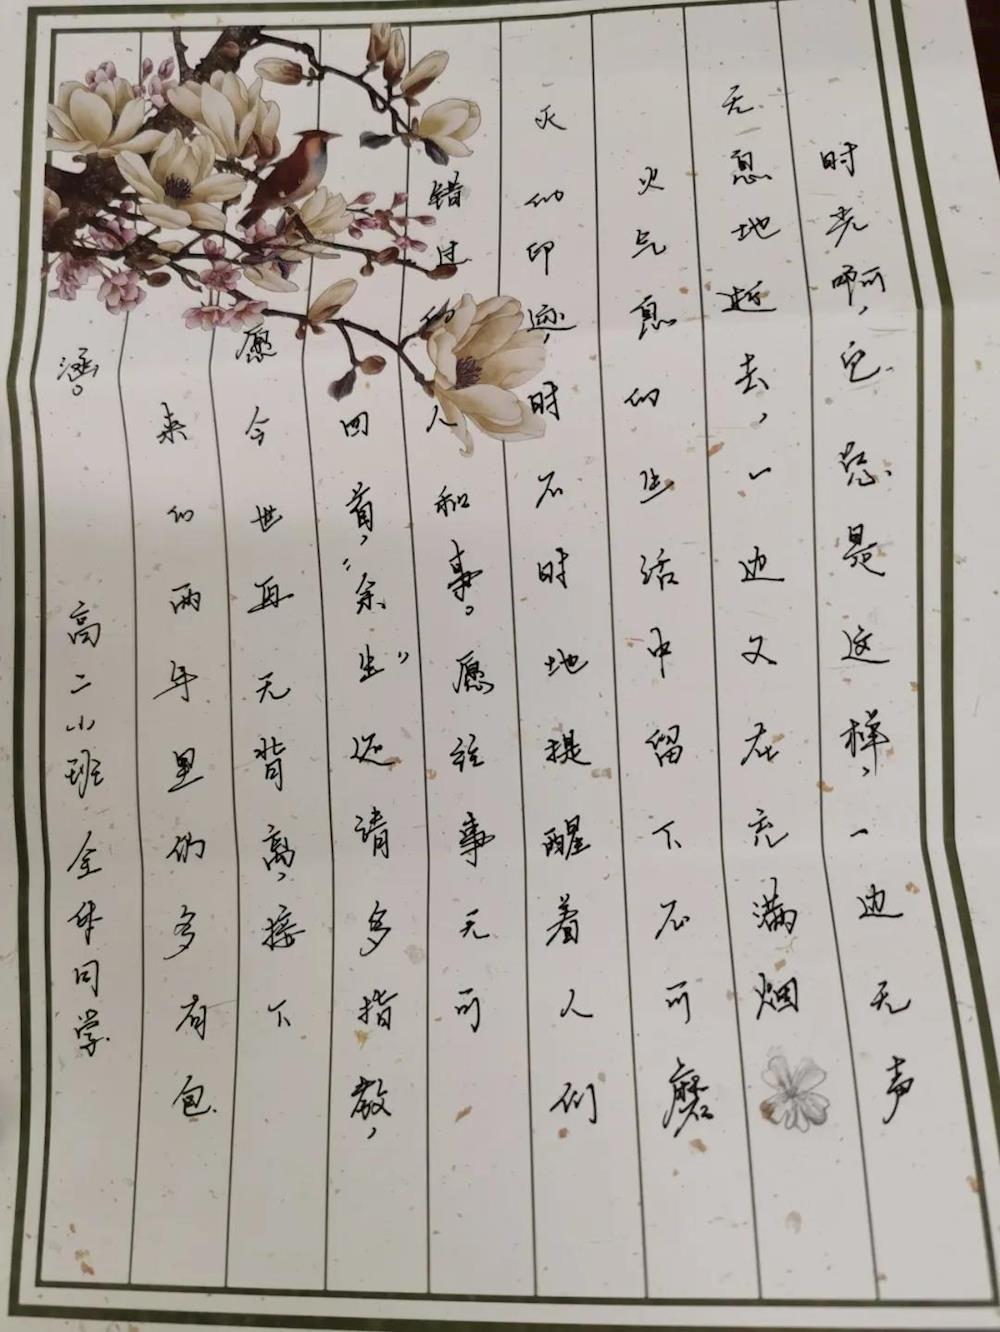 时光啊，它总是这样，一边无声
无息地逝去，一边又在充满烟
火气息的生活中留下不可磨
灭的印迹，时不时地提醒着人们
错过的人和事。愿往事无可
回首，“余生”还请多指教，
愿今世再无背离，接下
来的两年里仍多有包
涵。 高二小班全体同学